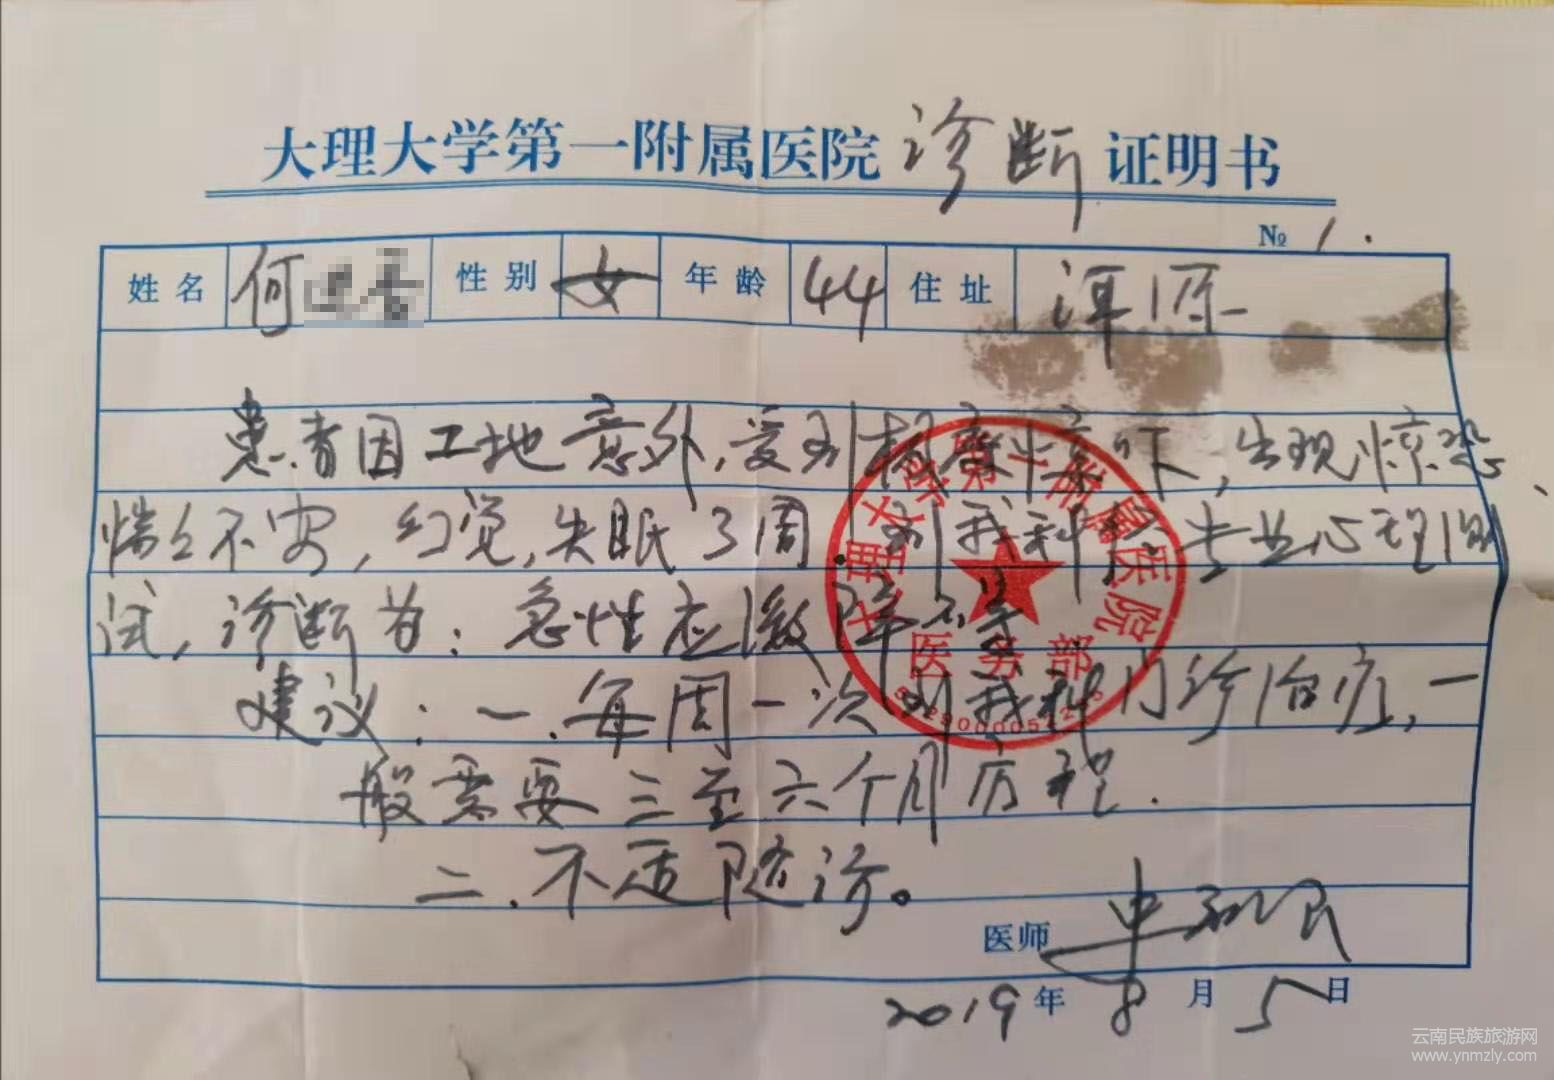 大理大学第一附属医院 诊断 证明书
№ 1.
姓名 何 性别 女 年龄 44 住址 洱源
患者因工地意外,受到极度惊吓,出现惊恐、
惴惴不安,幻觉,失眠3周.到我科经专业心理测
试,诊断为:急性应激障碍
建议:一.每周一次到我科门诊治疗,一
般需要三至六个月疗程.
二.不适随诊。
医师
2019年8月5日
大理大学第一附属医院
医务部
云南民族旅游网
www.ynmzly.com